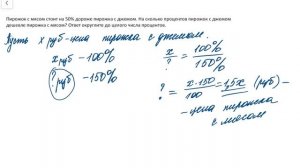 Пирожок с мясом стоит на 50% дороже пирожка с джемом. На сколько процентов пирожок с джемом
дешевле пирожка с мясом? Ответ округлите до целого числа процентов.
Пусть x руб - цена пирожка с джемом.
x руб - 100%
? руб - 150%
x / ? = 100% / 150%
? = x · 150 / 100 = 1,5x (руб) -
- цена пирожка
с мясом